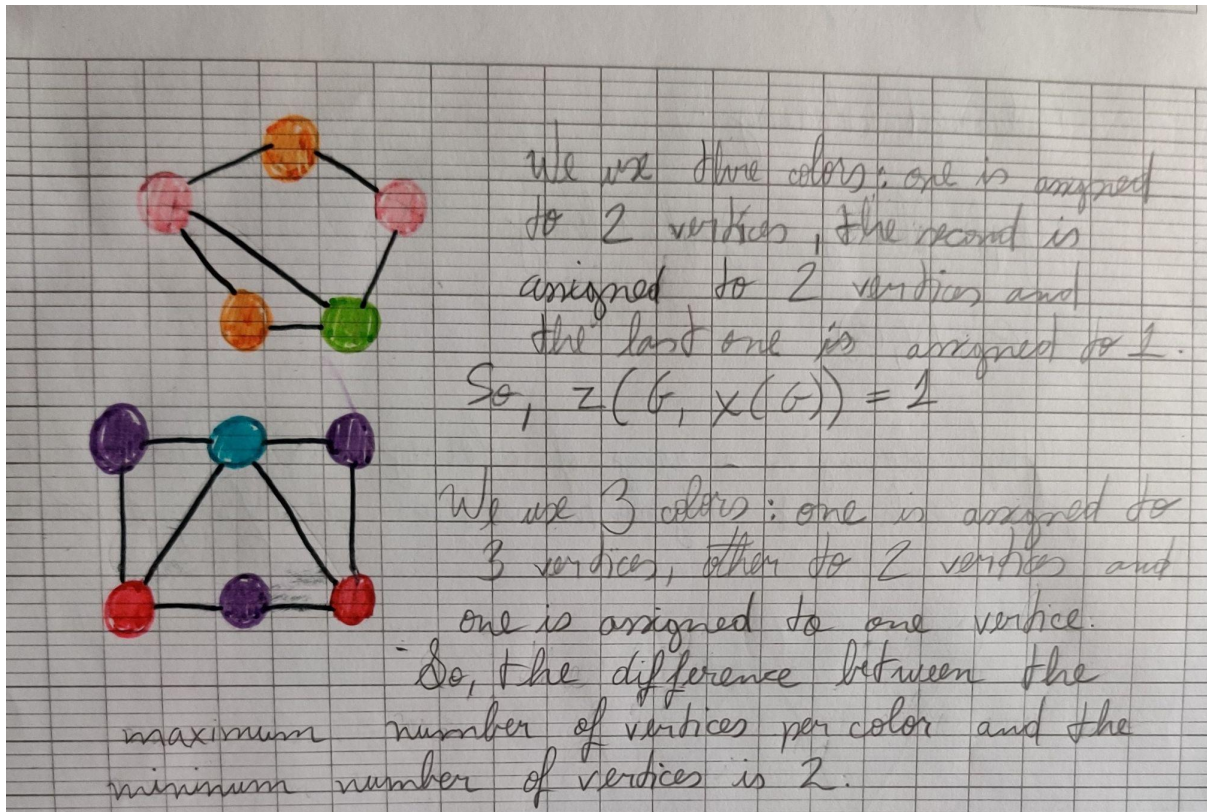 We use three colors: one is assigned
to 2 vertices, the second is
assigned to 2 vertices and
the last one is assigned to 1.
So, z(G, χ(G)) = 1
We use 3 colors: one is assigned to
3 vertices, other to 2 vertices and
one is assigned to one vertice.
So, the difference between the
maximum number of vertices per color and the
minimum number of vertices is 2.